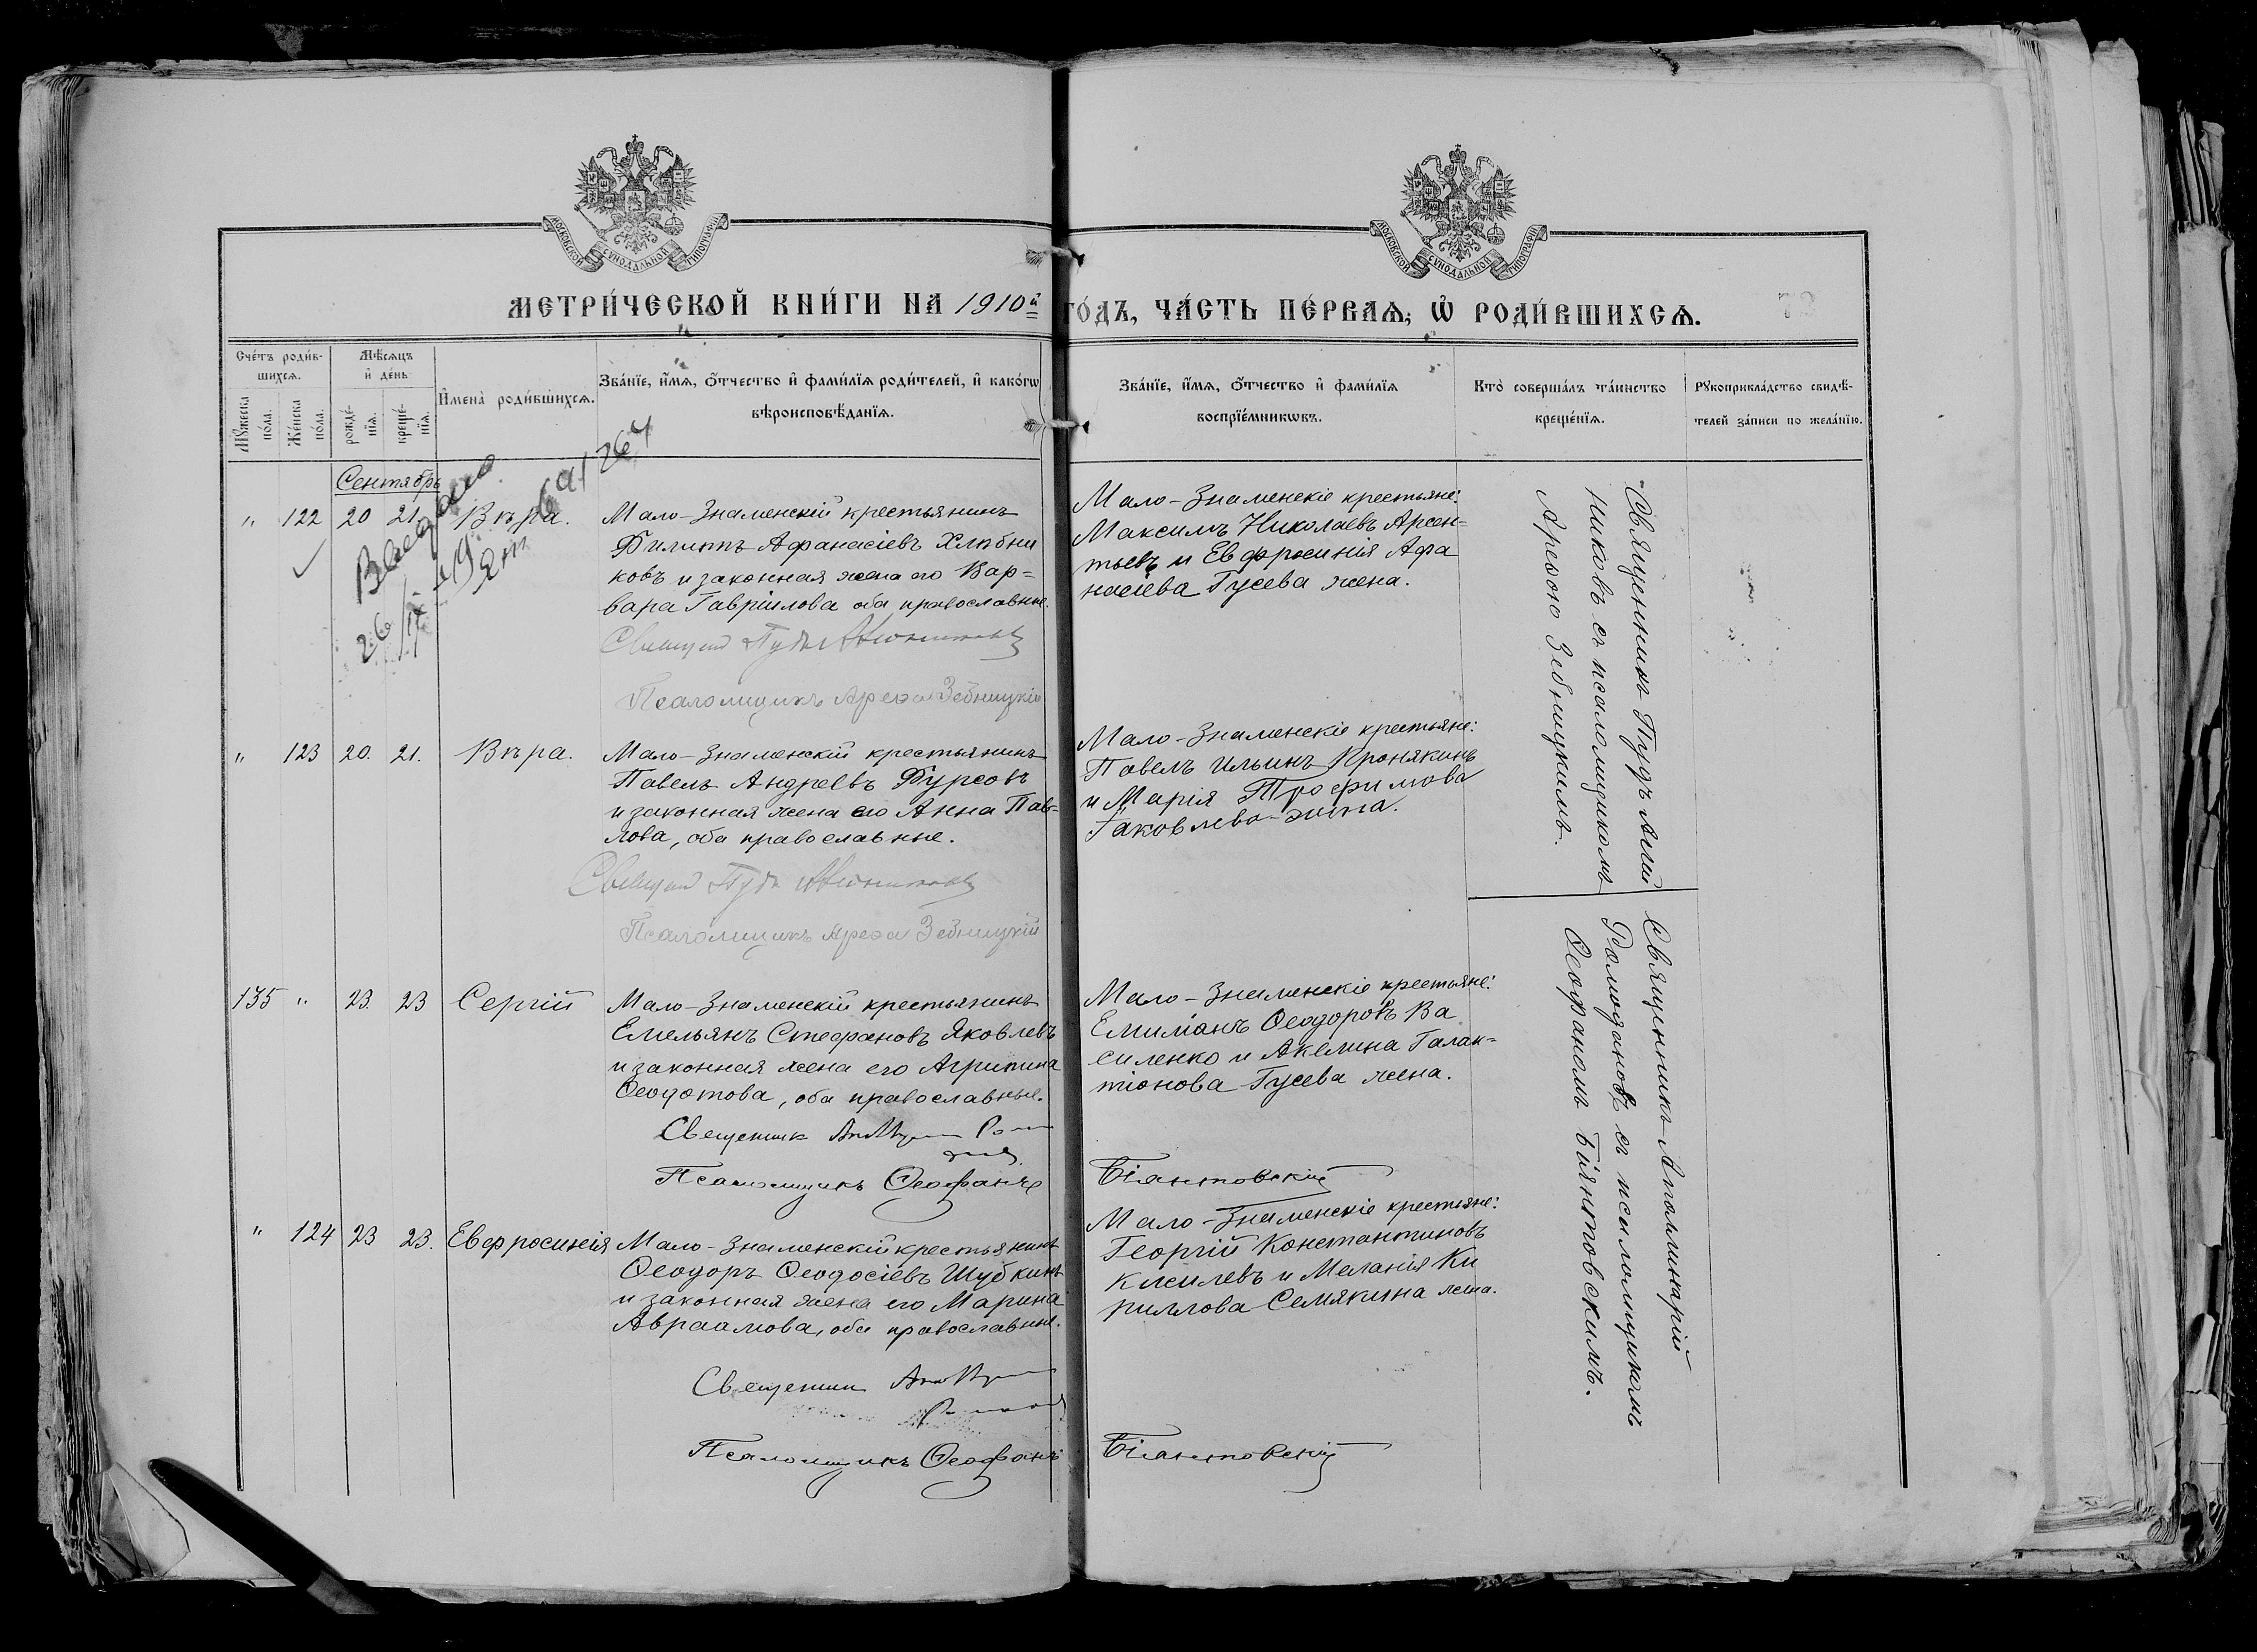 МОСКОВСКОЙ СѴНОДАЛЬНОЙ ТИПОГРАФІИ
МОСКОВСКОЙ СѴНОДАЛЬНОЙ ТИПОГРАФІИ
МЕТРИ́ЧЕСКОЙ КНИ́ГИ НА 1910й ГО́ДЪ, ЧА́СТЬ ПЕ́РВАѦ, Ѡ҆ РОДИ́ВШИХСѦ.
Сче́тъ роди́в-
шихсѧ.
Мꙋ́жеска
по́ла.
Же́нска
по́ла.
Мѣ́сѧцъ
и҆ де́нь
рожде́-
нїѧ.
креще́-
нїѧ.
И҆мена̀ роди́вшихсѧ.
Зва́нїе, и҆́мѧ, ѻ҆́тчество и҆ фами́лїѧ роди́телей, и҆ како́гѡ
вѣроисповѣ́данїѧ.
Зва́нїе, и҆́мѧ, ѻ҆́тчество и҆ фами́лїѧ
воспрїе́мникѡвъ.
Кто̀ соверша́лъ та́инство
креще́нїѧ.
Рꙋкоприкла́дство свидѣ́-
телей за́писи по жела́нїю.
Сентябрь
" 122 20 21. Вѣра.
Мало-Знаменскій крестьянинъ
Филиппъ Афанасіевъ Хлѣбни
ковъ и законная жена его Вар=
вара Гавріилова оба православные.
Псаломщикъ Ареѳа Зебницкій
Мало-Знаменскіе крестьяне:
Максимъ Николаевъ Арсен=
тьевъ и Евфросинія Афа
насіева Гусева жена.
Священникъ Пудъ Аній
никовъ съ псаломщикомъ
Ареѳою Зебницкимъ.
" 123 20. 21. Вѣра.
Мало-Знаменскій крестьянинъ
Павелъ Андреевъ Фурсовъ
и законная жена его Анна Пав-
лова, оба православные.
Псаломщикъ Ареѳа Зебницкій
Мало-Знаменскіе крестьяне:
Павелъ Ильинъ Кронякинъ
и Марія Трофимова
Яковлева
135 " 23. 23 Сергій
Мало-Знаменскій крестьянинъ
Емельянъ Стефановъ Яковлевъ
и законная жена его Агрипина
Ѳеодотова, оба православные.
Священникъ
Псаломщикъ Ѳеофанъ Біянтовскій
Мало-Знаменскіе крестьяне:
Емиліанъ Ѳеодоровъ Ва
силенко и Акелина Галак=
тіонова Гусева жена.
Священникъ Аполинарій
Ромодановъ съ псаломщикомъ
Ѳеофаномъ Біянтовскимъ.
" 124 23 23. Евфросинія
Мало-Знаменскій крестьянинъ
Ѳеодоръ Ѳеодосіевъ Шубкинъ
и законная жена его Марина
Авраамова, оба православные.
Священник
Псаломщикъ Ѳеофанъ Біянтовскій
Мало-Знаменскіе крестьяне:
Георгій Константиновъ
и Меланія Ки
риллова Семякина жена.